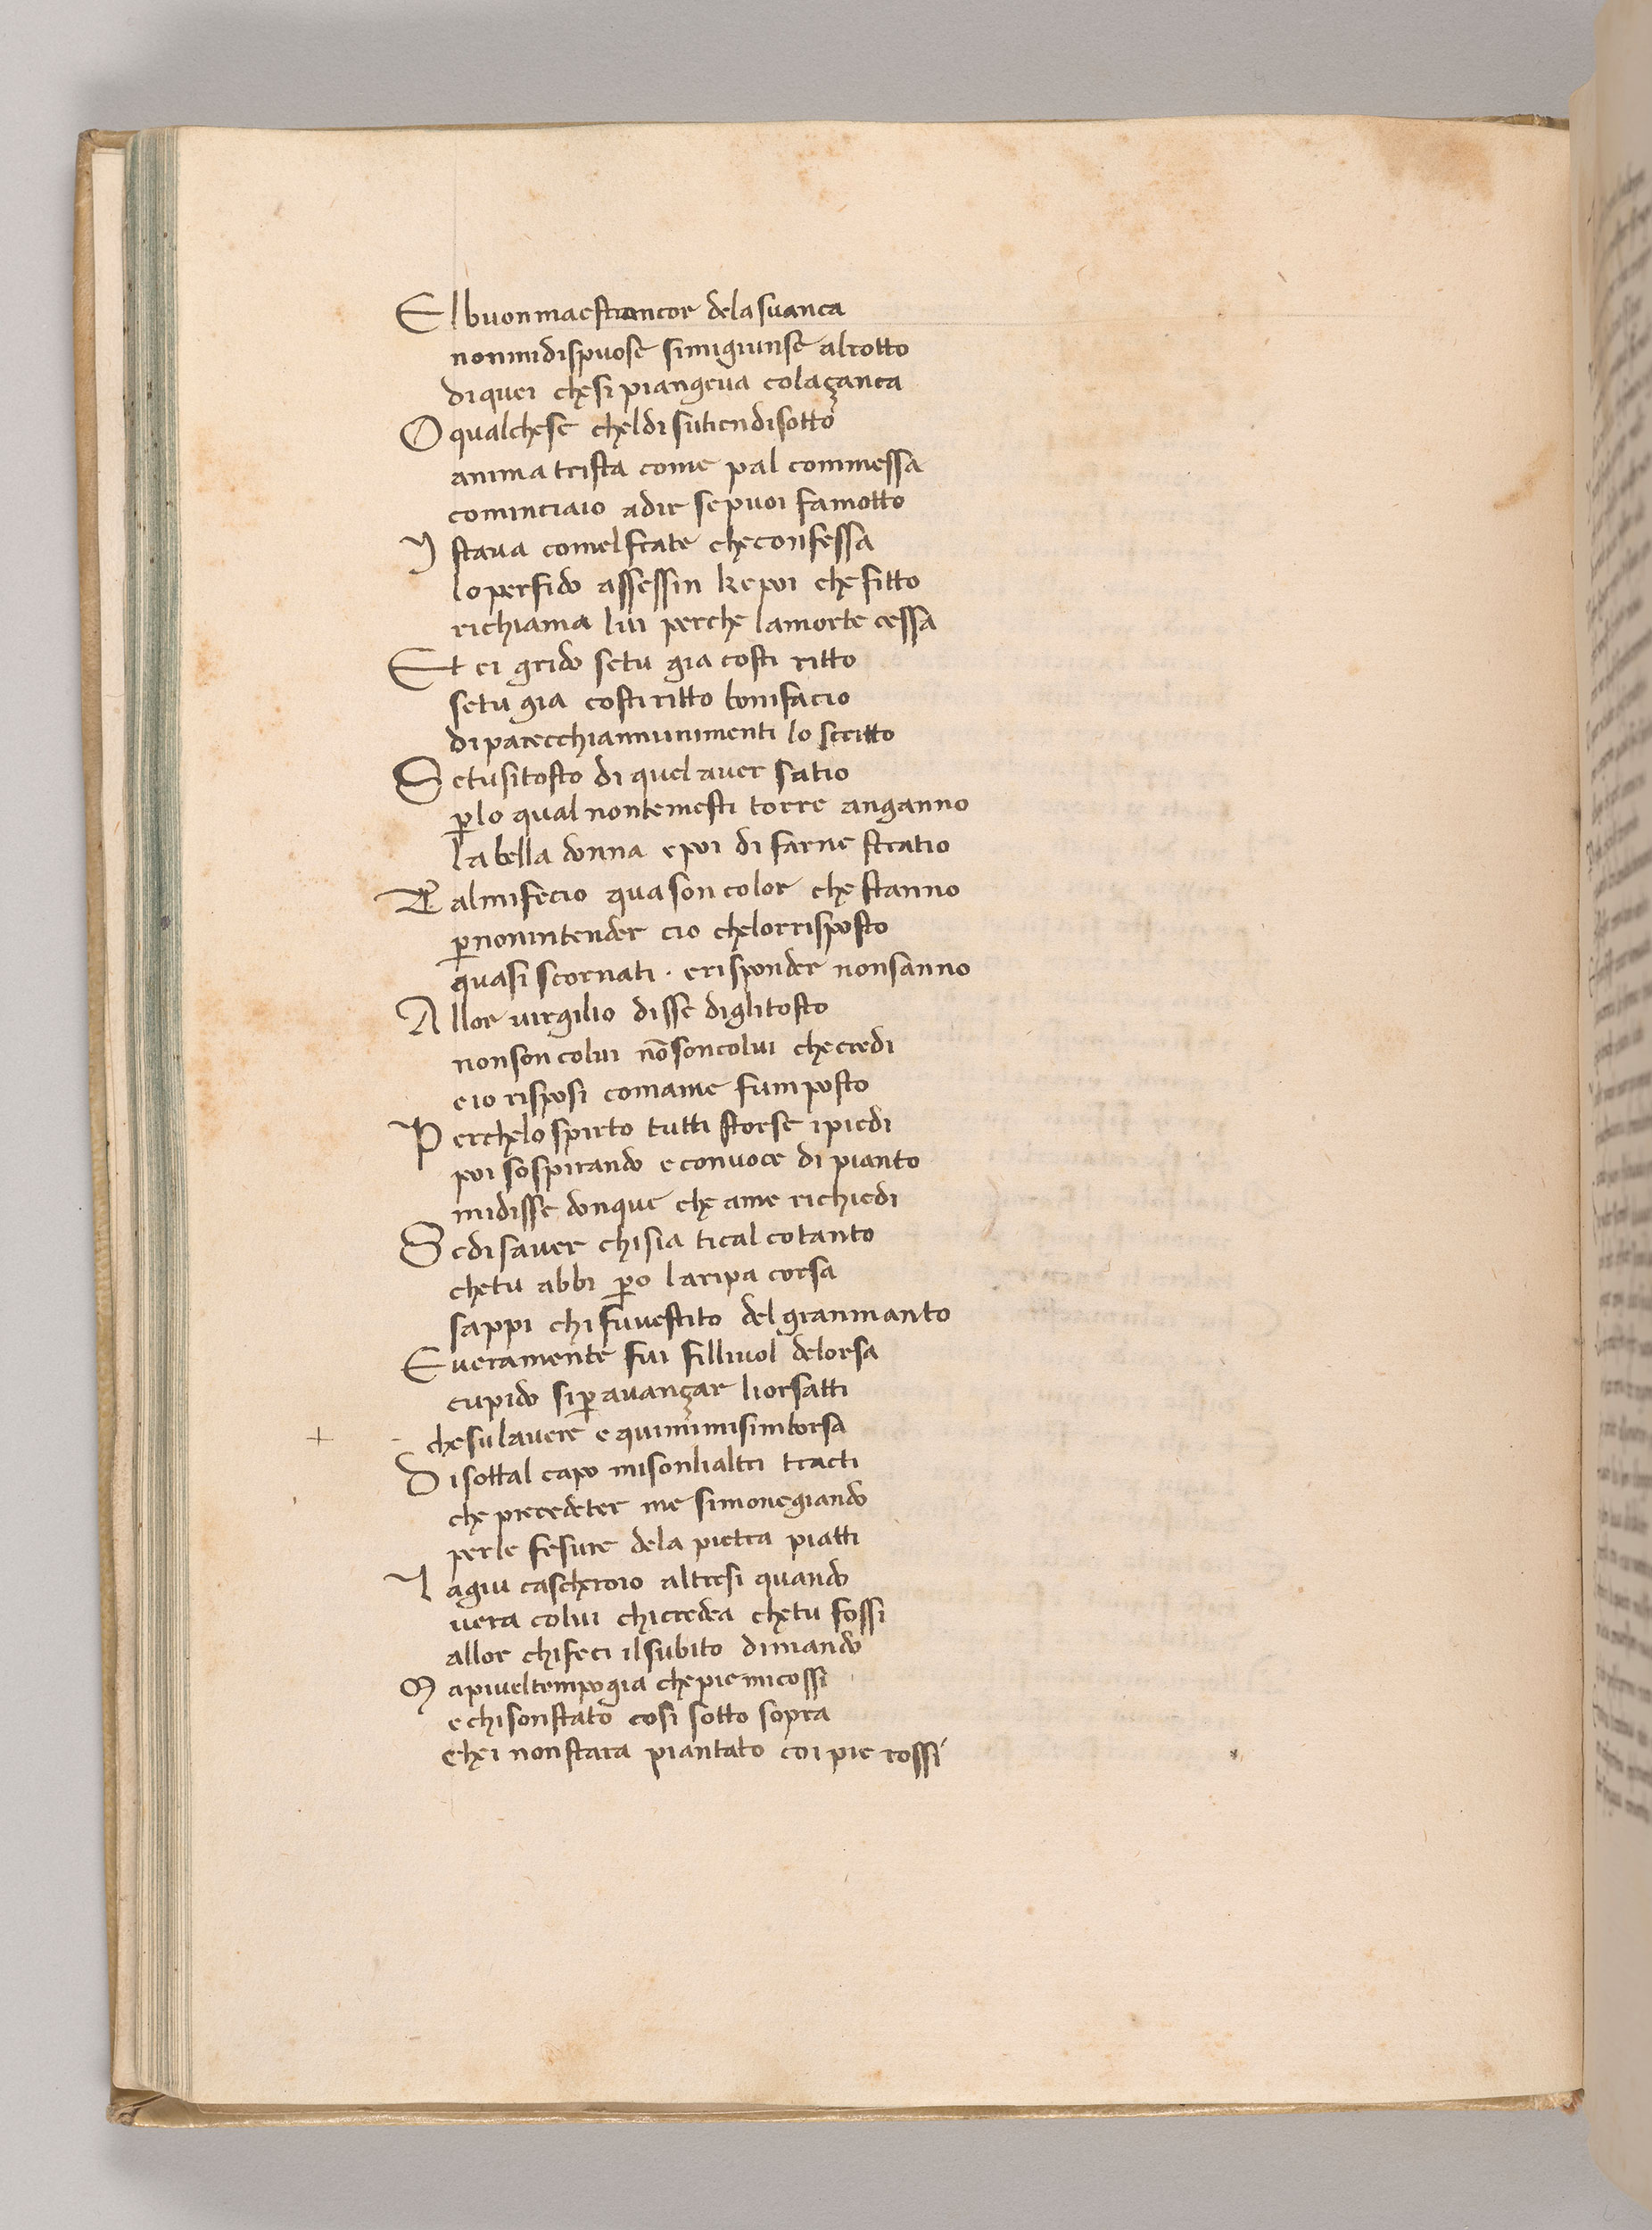 El buon maestro ancor dela su anca
non mi dispuose si mi giunse al rotto
di quei che si piangeva cola çanca
O qual che se chel di su tien di sotto
anima trista come pal commessa
cominciaio a dir se puoi fa motto
I stava comel frate che confessa
lo perfido assessin ke poi che fitto
richiama lui perche la morte cessa
Et ei grido se tu gia costi ritto
se tu gia costi ritto bonifacio
di parecchi anni mi menti lo scritto
Se tu si tosto di quel aver satio
p lo qual non temesti torre anganno
la bella donna e poi di farne stratio
Tal mi fecio qua son color che stanno
p non intender cio che lor risposto
quasi scornati . e risponder non sanno
Allor virgilio disse digli tosto
non son colui nō son colui che credi
e io risposi coma me fu imposto
Perche lo spirto tutti storse i piedi
poi sospirando e con voce di pianto
mi disse donque che a me richiedi
Se di saver chi sia ti cal cotanto
che tu abbi po la ripa corsa
sappi chi fu vestito del gran manto
E veramente fui filliuol delorsa
cupido si p avançar li orsatti
che su lavere e qui mi misi in borsa
Di sottal capo mi son li altri tracti
che preceder me simonegiando
per le fesure dela pietra piatti
La giu cascheroio altresi quando
verra colui chi credea che tu fossi
allor chi feci il subito dimando
Ma piu el tempo gia che pie mi cossi
e chi son stato cosi sotto sopra
chei non stara piantato coi pie rossi